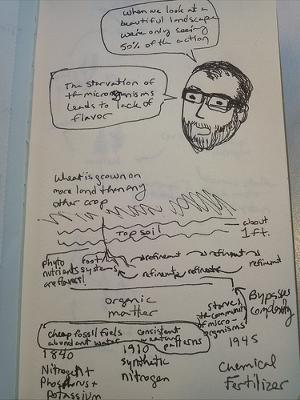 When we look at a
beautiful landscape
we're only seeing
50% of the action
The starvation of
the microorganisms
leads to lack of
flavor
Wheat is grown on
more land than any
other crop
about
1 ft.
Top soil
phyto
nutrients
are forest
root
systems
refinement
refinement
refinement
refinement
refinement
organic
matter
starves
the community
of micro-
organisms
Bypasses
complexity
cheap fossil fuels
abundant water
consistent
weather
patterns
1840
Nitrogen +
Phosphorus +
Potassium
1910
synthetic
nitrogen
1945
Chemical
Fertilizer